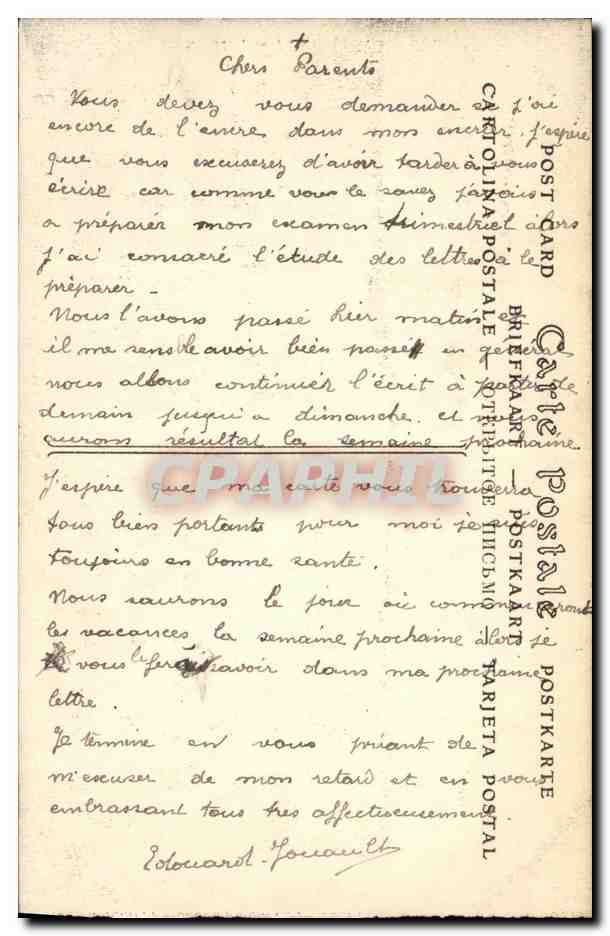 +
Chers Parents
Vous devez vous demander si j'ai
encore de l'encre dans mon encrier. J'espère
que vous excuserez d'avoir tarder à vous
écrire car comme vous le savez j'avais
a préparér mon examen trimestriel àlors
j'ai consacré l'étude des lettres à le
préparer -
Nous l'avons passé hier matin et
il me semble avoir bien passé en général
nous allons continuér l'écrit à partir de
demain jusqu'a dimanche. et nous
aurons résultat la semaine prochaine
J'espère que ma carte vous trouvera
tous bien portants pour moi je suis
toujours en bonne santé.
Nous saurons le jour où commenceront
les vacances la semaine prochaine àlors je
vous le ferai savoir dans ma prochaine
lettre.
Je termine en vous priant de
m'excuser de mon retard et en vous
embrassant tous tres affectueusement
Edouard Jouault
Carte Postale
POST CARD
POSTKARTE
BRIEFKAART — POSTKAART
CARTOLINA POSTALE — ОТКРЫТОЕ ПИСЬМО — TARJETA POSTAL
CPAPHIL